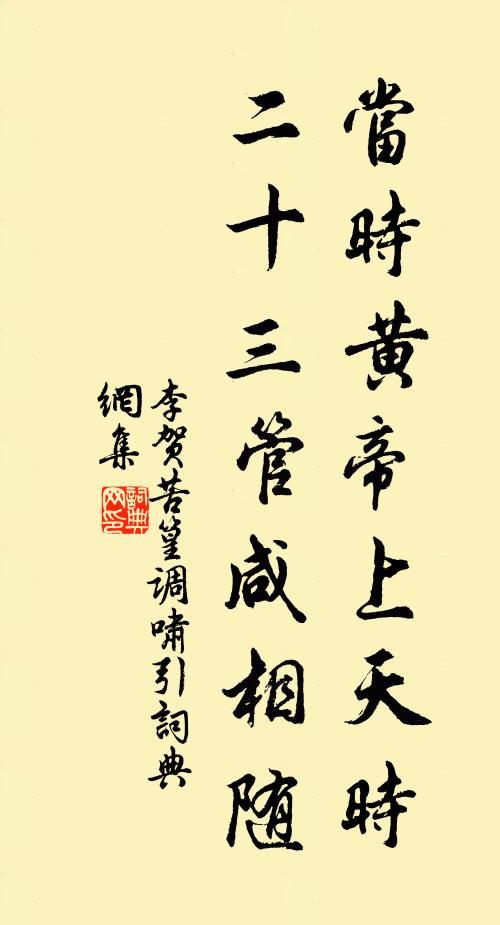 當時黃帝上天時
二十三管咸相隨
李賀苦篁調嘯引詞典
網集
詞典
网印